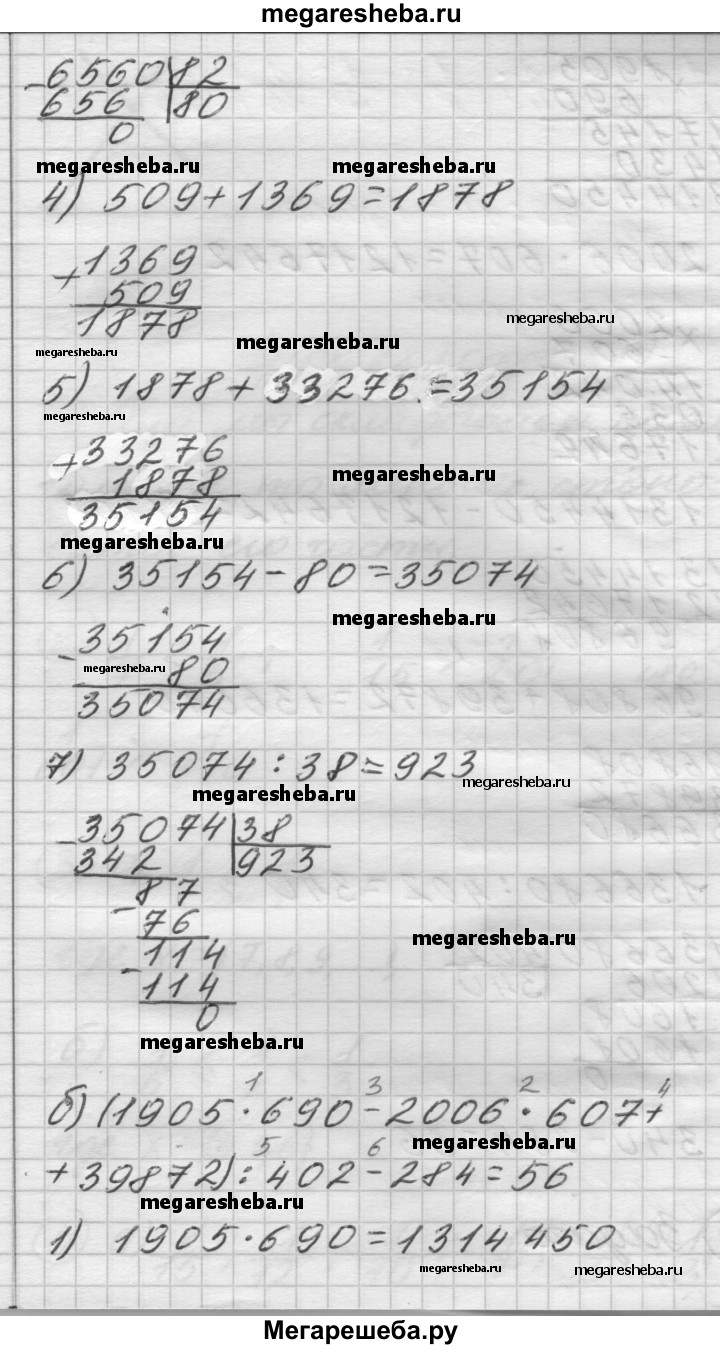 megaresheba.ru
- 6560 | 82
656 | 80
0
megaresheba.ru megaresheba.ru
4) 509+1369=1878
+ 1369
509
1878
megaresheba.ru
megaresheba.ru
megaresheba.ru
5) 1878+33276.=35154
megaresheba.ru
+ 33276
1878
megaresheba.ru
35154
megaresheba.ru
6) 35154-80=35074
megaresheba.ru
- 35154
80
megaresheba.ru
35074
7) 35074:38=923
megaresheba.ru
megaresheba.ru
- 35074 | 38
342 | 923
- 87
76
- 114
114
megaresheba.ru
0
megaresheba.ru
1 3 2 4
б) (1905·690-2006·607+
megaresheba.ru
5 6
+39872):402-284=56
megaresheba.ru
1) 1905·690=1314450
megaresheba.ru
megaresheba.ru
Мегарешеба.ру